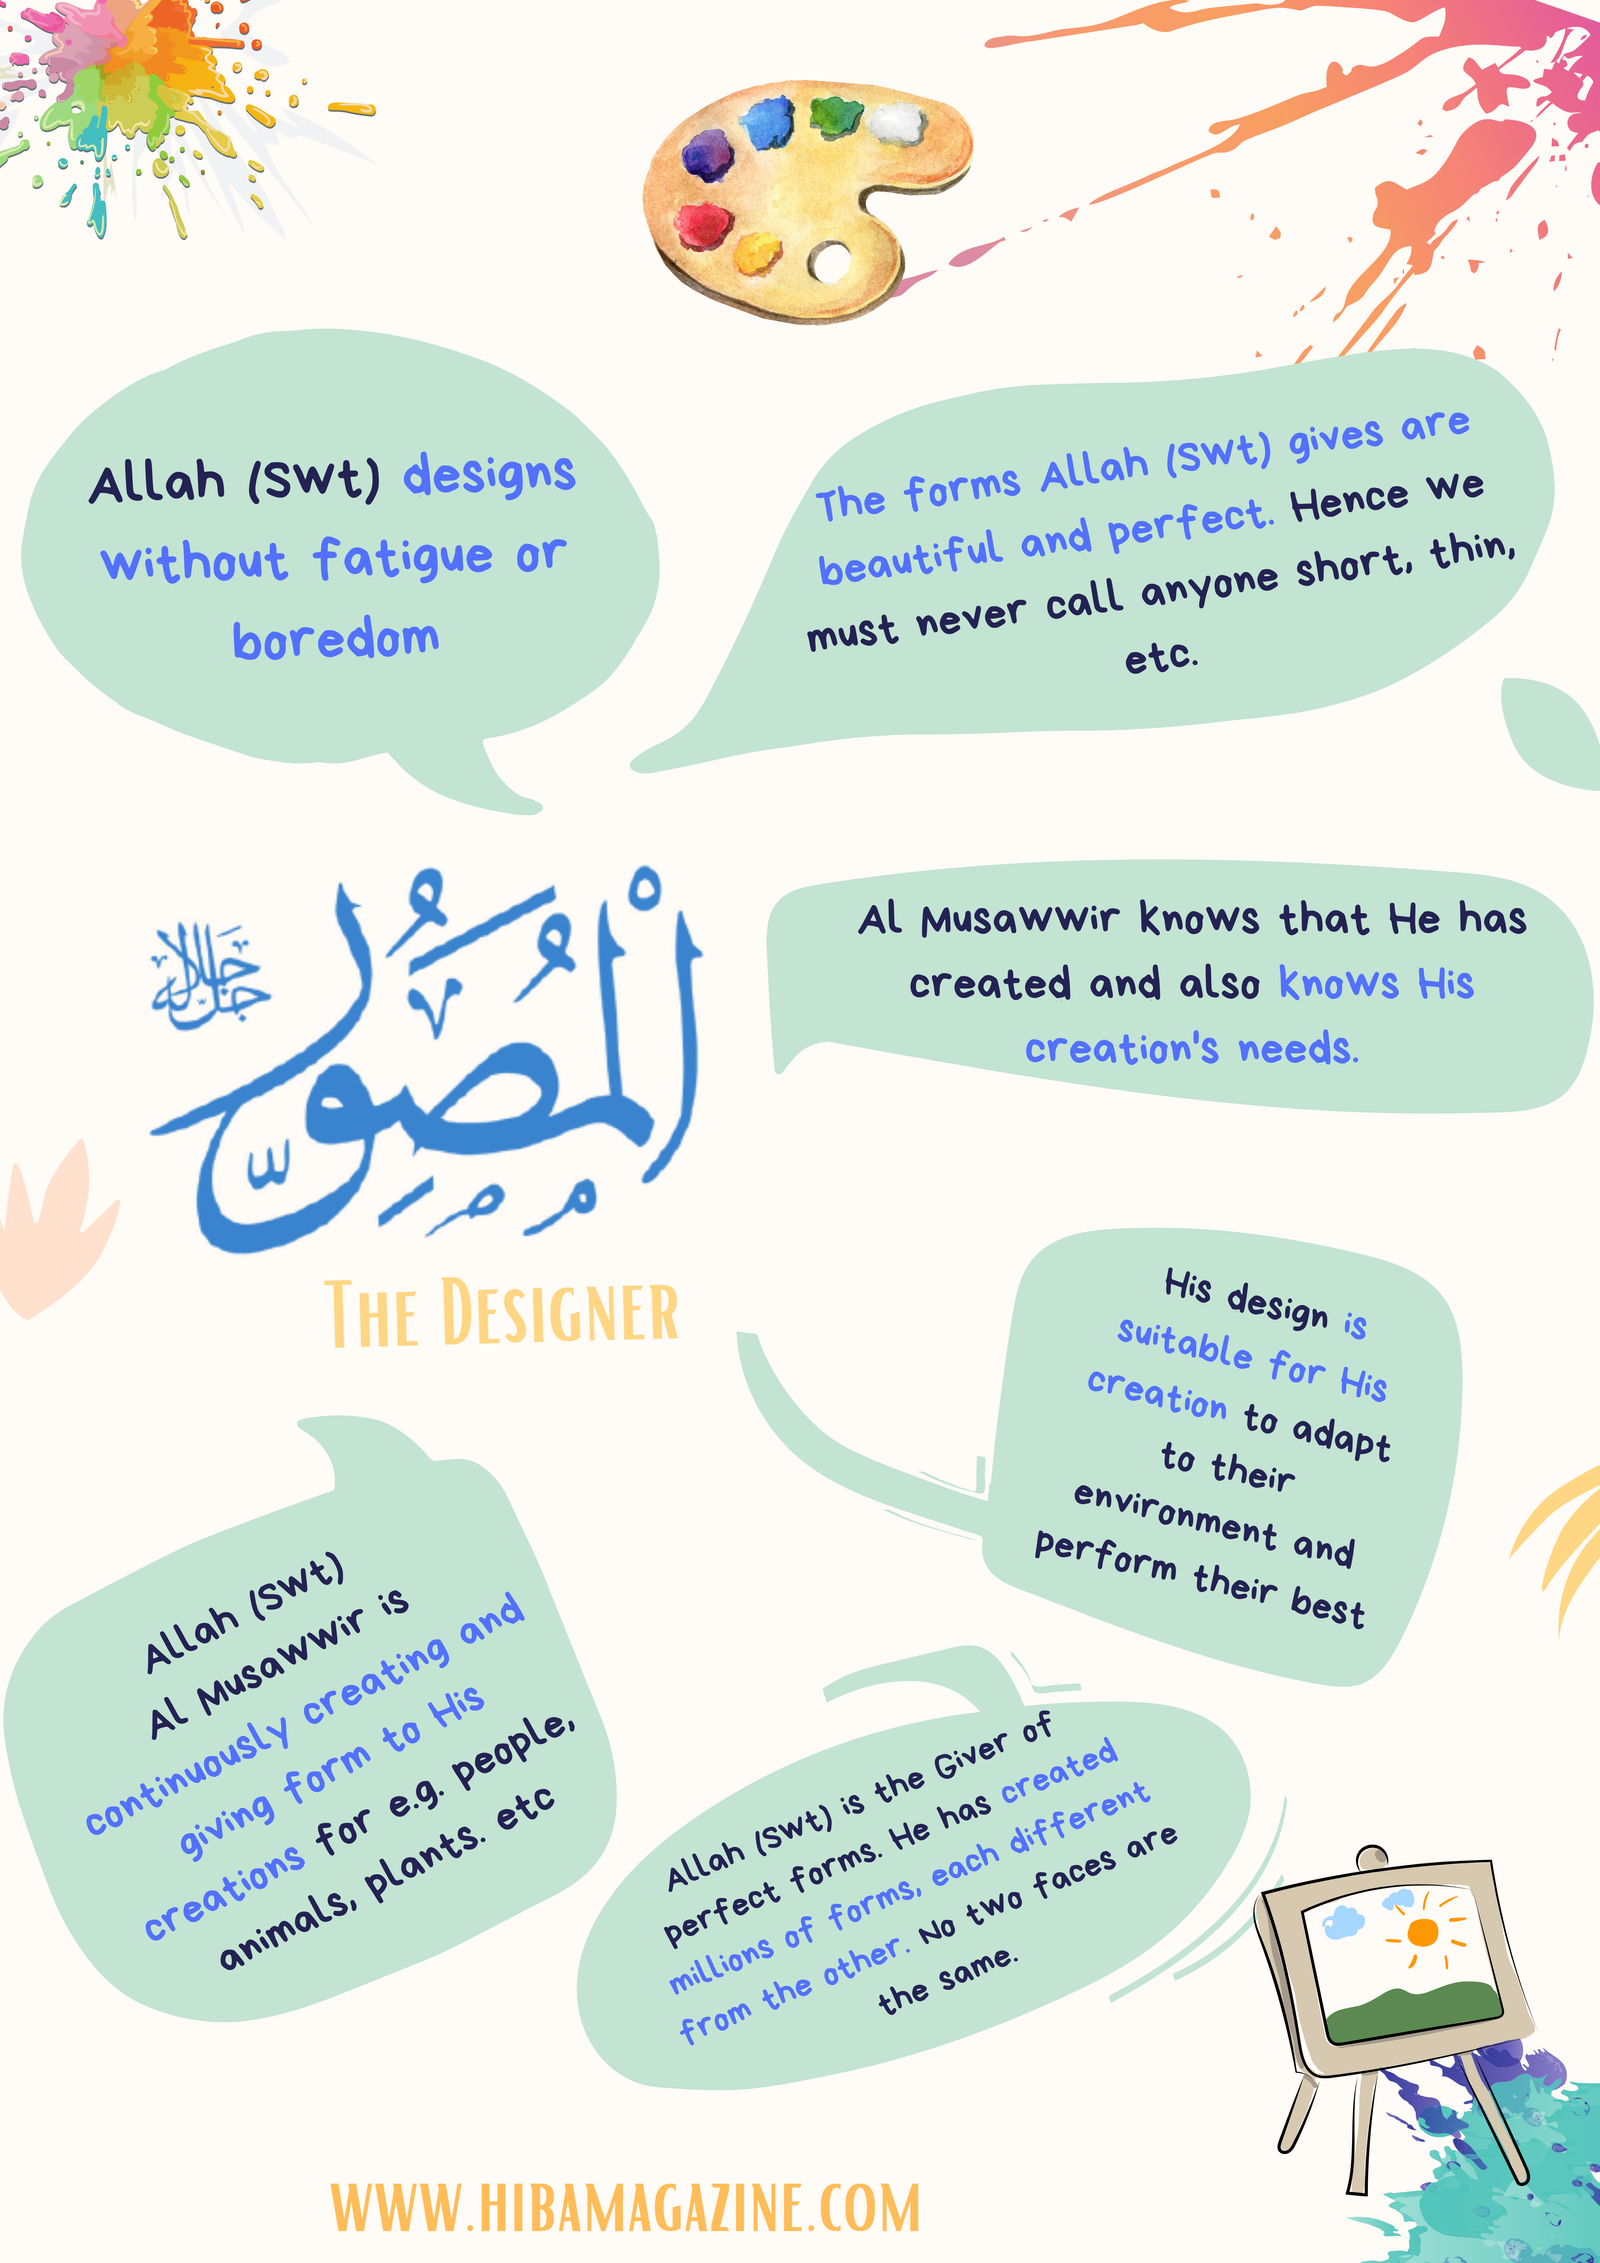 Allah (SWT) designs
without fatigue or
boredom
The forms Allah (SWT) gives are
beautiful and perfect. Hence we
must never call anyone short, thin,
etc.
المُصَوِّرُ
جل جلاله
The Designer
Al Musawwir knows that He has
created and also knows His
creation's needs.
His design is
suitable for His
creation to adapt
to their
environment and
perform their best
Allah (SWT)
Al Musawwir is
continuously creating and
giving form to His
creations for e.g. people,
animals, plants. etc
Allah (SWT) is the Giver of
perfect forms. He has created
millions of forms, each different
from the other. No two faces are
the same.
WWW.HIBAMAGAZINE.COM